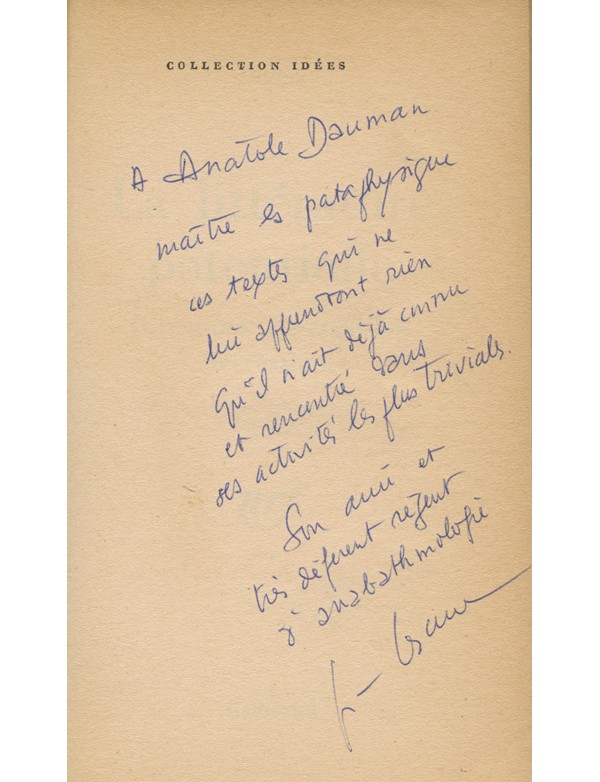 COLLECTION IDÉES
A Anatole Dauman
maître ès pataphysique
ces textes qui ne
lui apprendront rien
Qu'il n'ait déjà connu
et rencontré dans
ses activités les plus triviales.
Son ami et
très déférent régent
d'anabathmologie